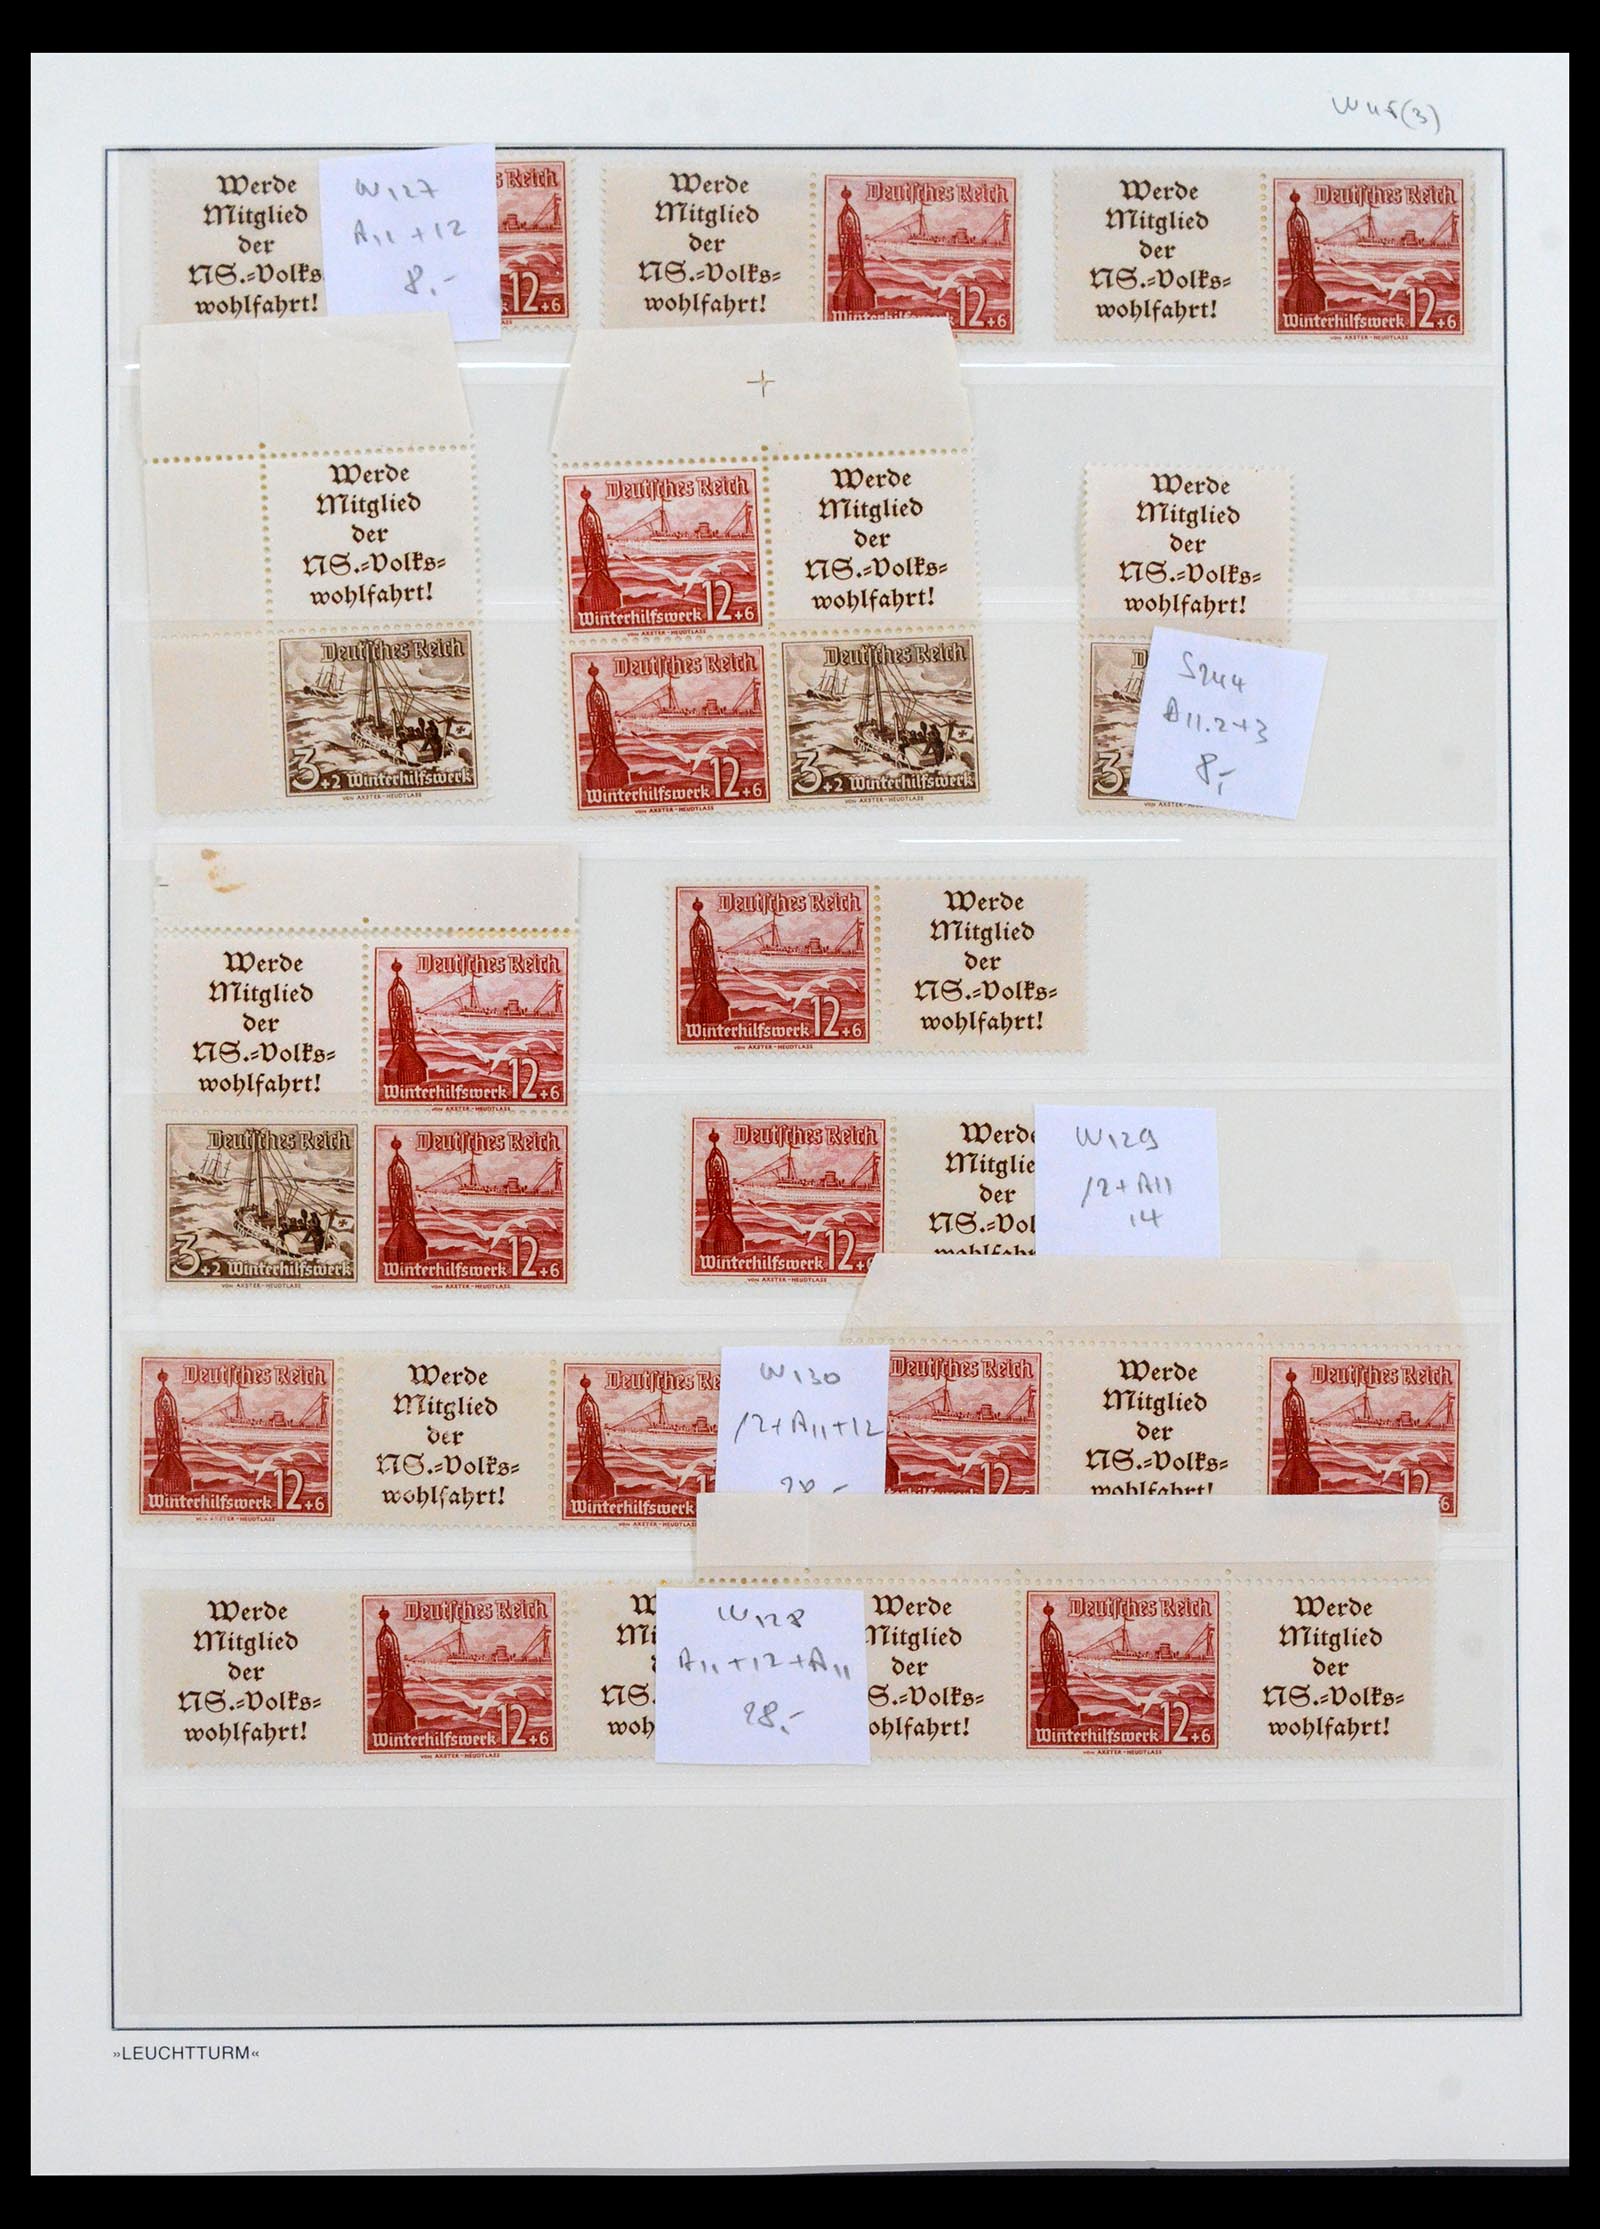 W48(3)
Werde
Mitglied
der
NS.=Volks
wohlfahrt!
W127
A11+12
8.-
s Reich
12+6
Werde
Mitglied
der
NS.=Volks=
wohlfahrt!
Deutsches Reich
Winterhilfswerk 12+6
Werde
Mitglied
der
NS.=Volks=
wohlfahrt!
Deutsches Reich
Winterhilfswerk 12+6
VON AXSTER-HEUDTLASS
Werde
Mitglied
der
NS.=Volks=
wohlfahrt!
Deutsches Reich
3+2 Winterhilfswerk
VON AXSTER-HEUDTLASS
Deutsches Reich
Winterhilfswerk 12+6
VON AXSTER-HEUDTLASS
Werde
Mitglied
der
NS.=Volks=
wohlfahrt!
Deutsches Reich
Winterhilfswerk 12+6
VON AXSTER-HEUDTLASS
Deutsches Reich
3+2 Winterhilfswerk
VON AXSTER-HEUDTLASS
Werde
Mitglied
der
NS.=Volks=
wohlfahrt!
D
3
VON AXSTER-
S244
A11.2+3
8,-
Werde
Mitglied
der
NS.=Volks=
wohlfahrt!
Deutsches Reich
Winterhilfswerk 12+6
VON AXSTER-HEUDTLASS
Deutsches Reich
3+2 Winterhilfswerk
VON AXSTER-HEUDTLASS
Deutsches Reich
Winterhilfswerk 12+6
VON AXSTER-HEUDTLASS
Deutsches Reich
Winterhilfswerk 12+6
VON AXSTER-HEUDTLASS
Werde
Mitglied
der
NS.=Volks=
wohlfahrt!
Deutsches Reich
Winterhilfswerk 12+6
VON AXSTER-HEUDTLASS
Werde
Mitglie
der
NS.=Vol
wohlfahr
W129
12+A11
14
Deutsches Reich
Winterhilfswerk 12+6
VON AXSTER-HEUDTLASS
Werde
Mitglied
der
NS.=Volks=
wohlfahrt!
Deutsches Re
Winterhilfswerk 1
VON AXSTER-HEUDTLAS
W130
12+A11+12
28,-
Deutsches Reich
12
Werde
Mitglied
der
NS.=Volks=
wohlfahrt!
Deutsches Reich
12
6
Werde
Mitglied
der
NS.=Volks=
wohlfahrt!
Deutsches Reich
Winterhilfswerk 12+6
VON AXSTER-HEUDTLASS
W
Mi
NS.
woh
W128
A11+12+A11
28,-
Werde
Mitglied
der
S.=Volks=
ohlfahrt!
Deutsches Reich
Winterhilfswerk 12+6
VON AXSTER-HEUDTLASS
Werde
Mitglied
der
NS.=Volks=
wohlfahrt!
»LEUCHTTURM«